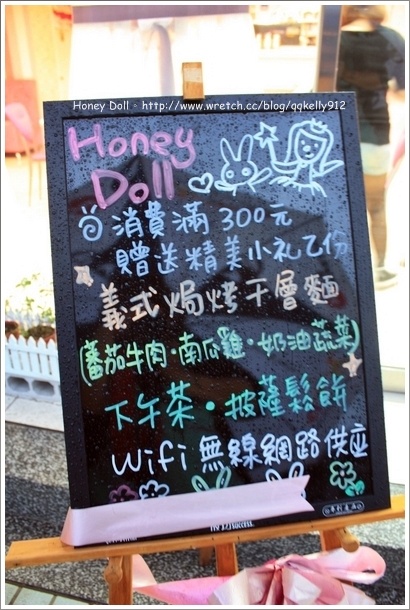 Honey Doll。http://www.wretch.cc/blog/qqkelly912
Honey
Doll
消費滿 300元
贈送精美小礼乙份
義式焗烤千層麵
(蕃茄牛肉・南瓜雞・奶油蔬菜)
下午茶・披薩鬆餅
Wifi 無線網路供应
SUCCESS